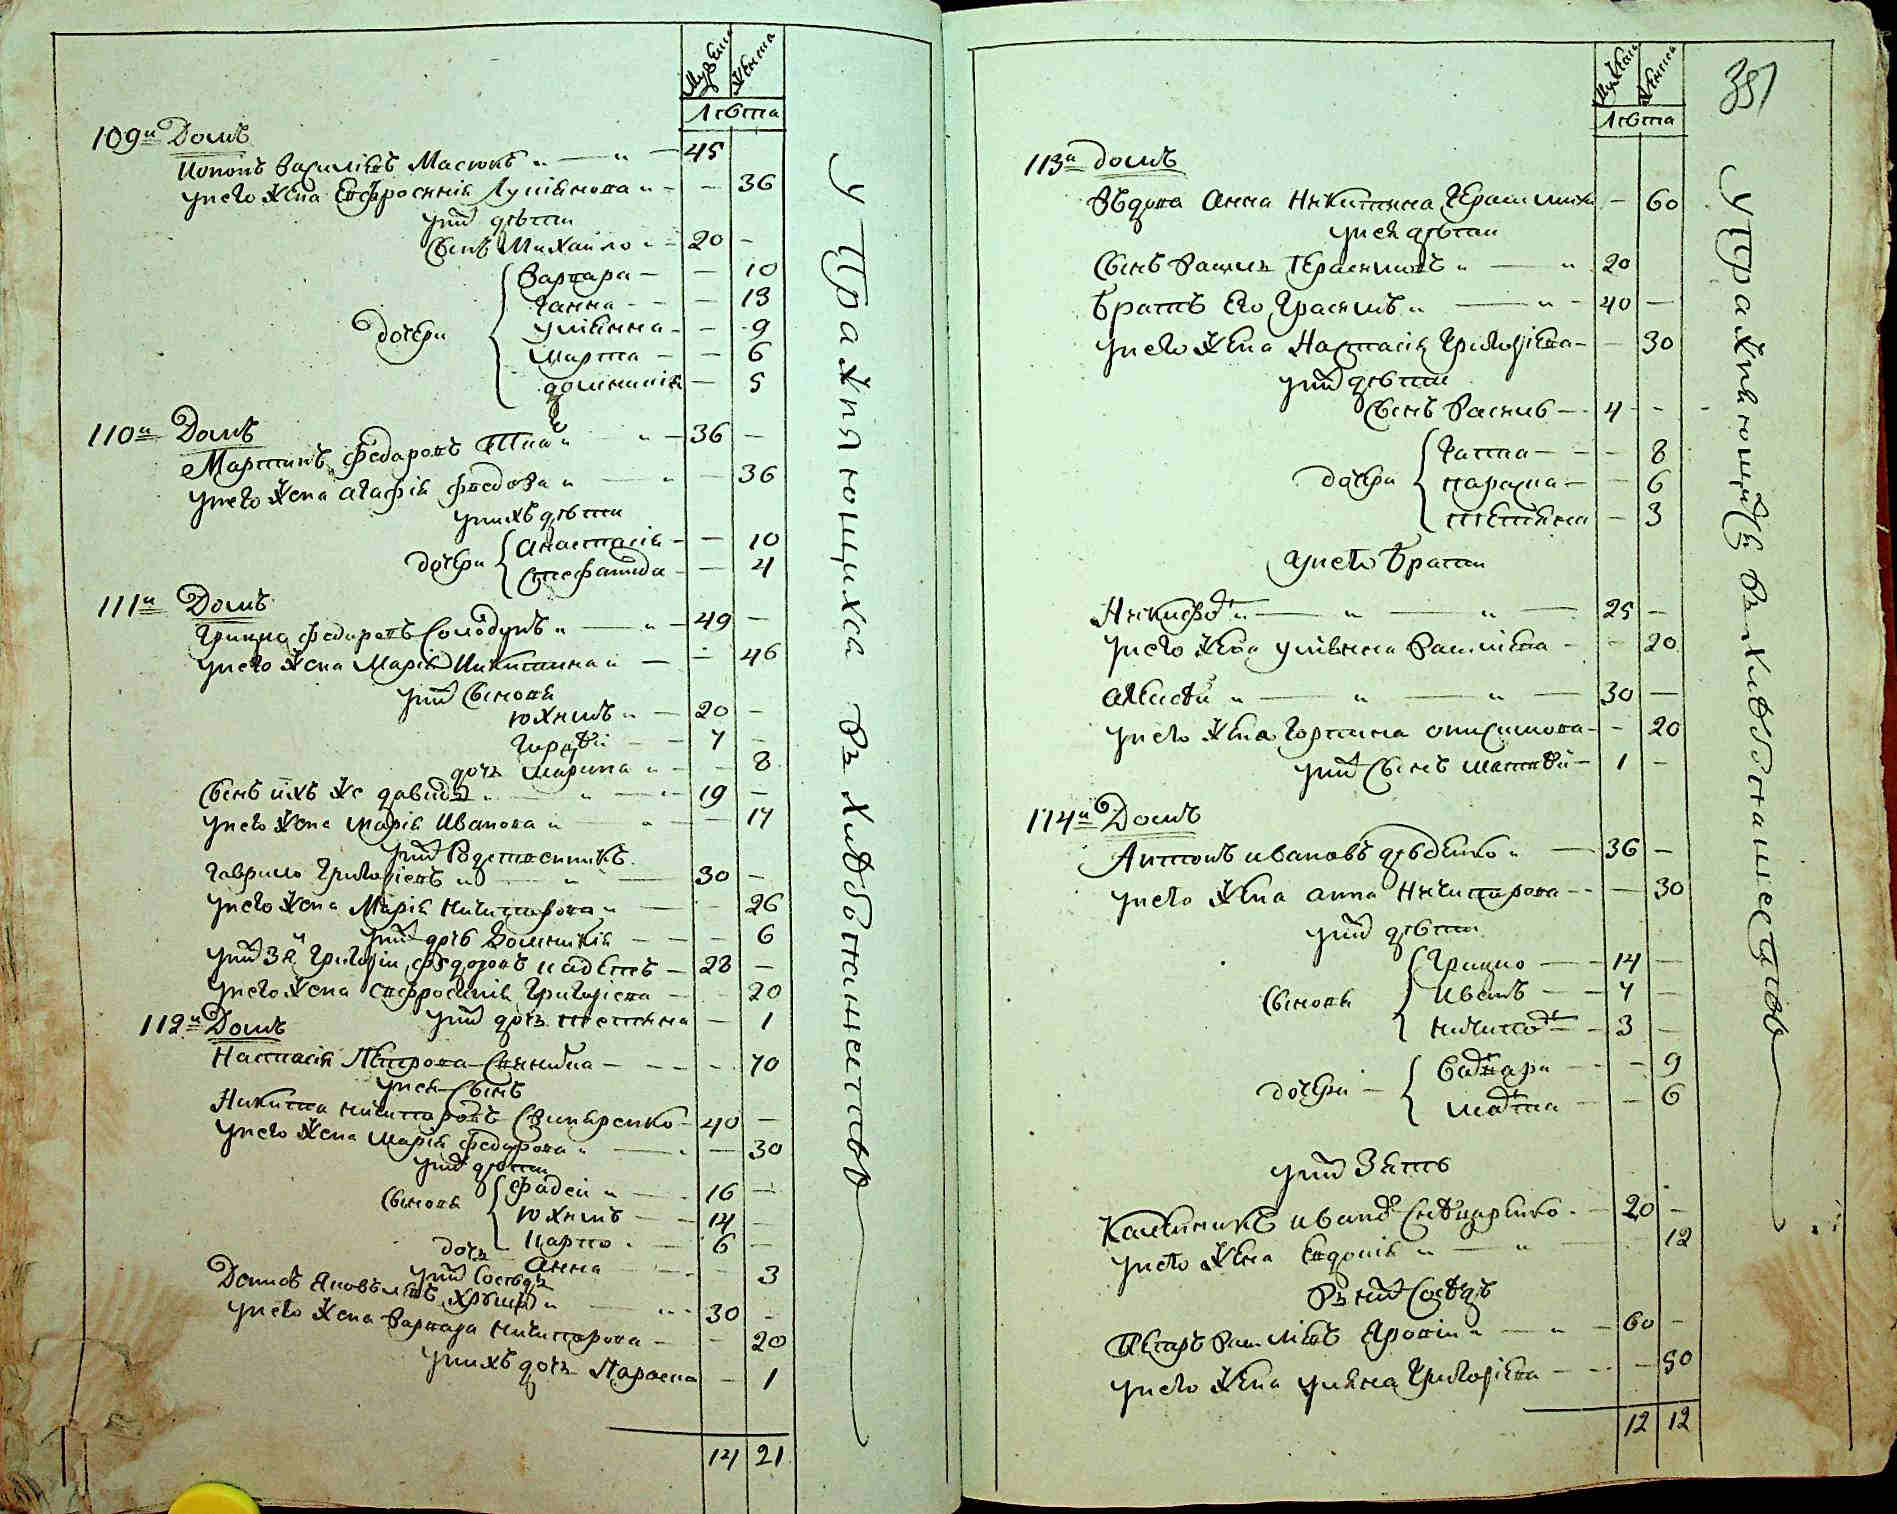 Мужска Женска
Лѣта
109й Домъ
Василіевъ Масюкъ 45
у него жена Евфросинія 36
у них дѣти
Сынъ Михайло 20
Дочери
Варвара 10
Ганна 13
Уліянна 9
Марта 6
Доминикія 5
110й Домъ
Мартинъ Федоровъ 36
у него жена Агафія Федова 36
у нихъ дѣти
дочери
Анастасія 10
Стефанида 4
111й Домъ
Грицко Федоровъ Солодунъ 49
у него жена Марія Никитина 46
у них Сыновя
Юхимъ 20
7
дочъ Марина 8
Сынъ ихъ же давидъ 19
у него жена Марія Иванова 17
у них
Гаврило Григоріевъ 30
у него жена Марія Ничипорова 26
у них дочь Домникія 6
у них Григорій Федоровъ 28
у него жена Евфросинія Григоріева 20
у них дочъ Тетяна 1
112й Домъ
Настасія Петрова 70
у нея Сынъ
Никита Ничипоровъ 40
у него жена Марія Федорова 30
у них дѣти
Сыновя
Фадей 16
Юхимъ 14
Карпо 6
дочъ Анна 3
у них Сосѣдъ
Яковлевъ 30
у него жена Варвара Ничипорова 20
у нихъ дочъ Параска 1
14 21
Упражняющихся въ хлѣбопашествѣ
Мужска Женска
Лѣта
351
113й домъ
Вѣдова Анна Никитина 60
у нея дѣти
Сынъ Герасимовъ 20
братъ его Герасимъ 40
у него жена Настасія Григоріева 30
у них дѣти
Сынъ Василь 4
дочери
Гапка 8
Параска 6
Тетяна 3
у него братя
Никифор 25
у него жена Уліянна Василіева 20
Алексѣй 30
у него жена Горпина Онисимова 20
у них Сынъ Матвѣй 1
114й Домъ
Антонъ Ивановъ 36
у него жена Анна Ничипорова 30
у них дѣти
Сыновя
Грицко 14
Иванъ 7
Ничипор 3
дочери
Варвара 9
Марта 6
у них Зять
Иванов 20
у него жена Евдокія 12
Въ них Сосѣдъ
Петръ Василіевъ 60
у него жена Уляна Григоріева 50
12 12
Упражняющихся въ хлѣбопашествѣ